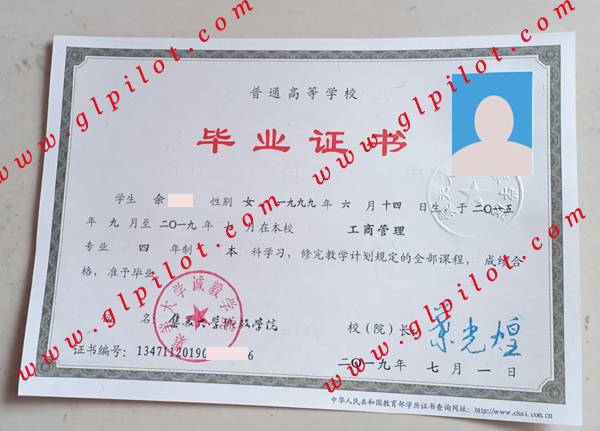 普通高等学校
毕业证书
学生 余 性别 女，一九九九年 六 月十四 日生，于二〇一五
年 九 月至二〇一九年 七 月在本校 工商管理
专业 四 年制 本 科学习，修完教学计划规定的全部课程，成绩合
格，准予毕业
校 名：集美大学诚毅学院 校（院）长：
证书编号：13471120190 6 二〇一九年 七月一日
中华人民共和国教育部学历证书查询网址：http://www.chsi.com.cn
集美大学诚毅学院
www.glpilot.com
www.glpilot.com
www.glpilot.com
www.glpilot.com